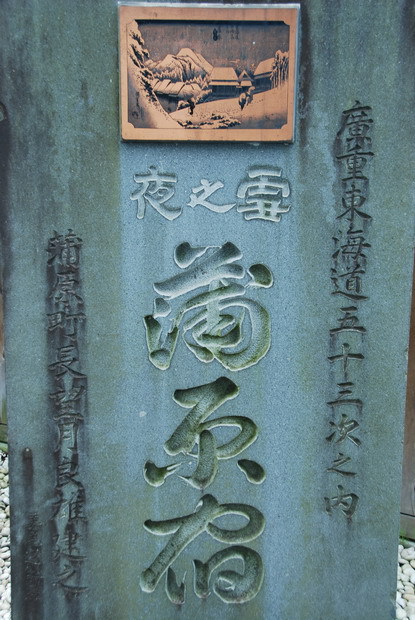 廣重東海道五十三次之内
夜之雪
蒲原宿
蒲原町長望月良雄建之